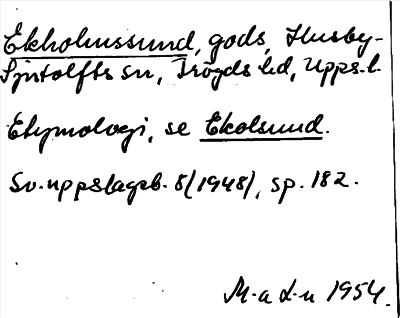 Ekholmssund, gods, Husby-
Sjutolfts sn, Trögds hd, Upps.l.
Etymologi, se Ekolsund.
Sv. uppslagsb. 8(1948), sp. 182.
M-a L-n 1954.